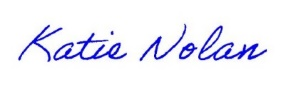 Katie Nolan